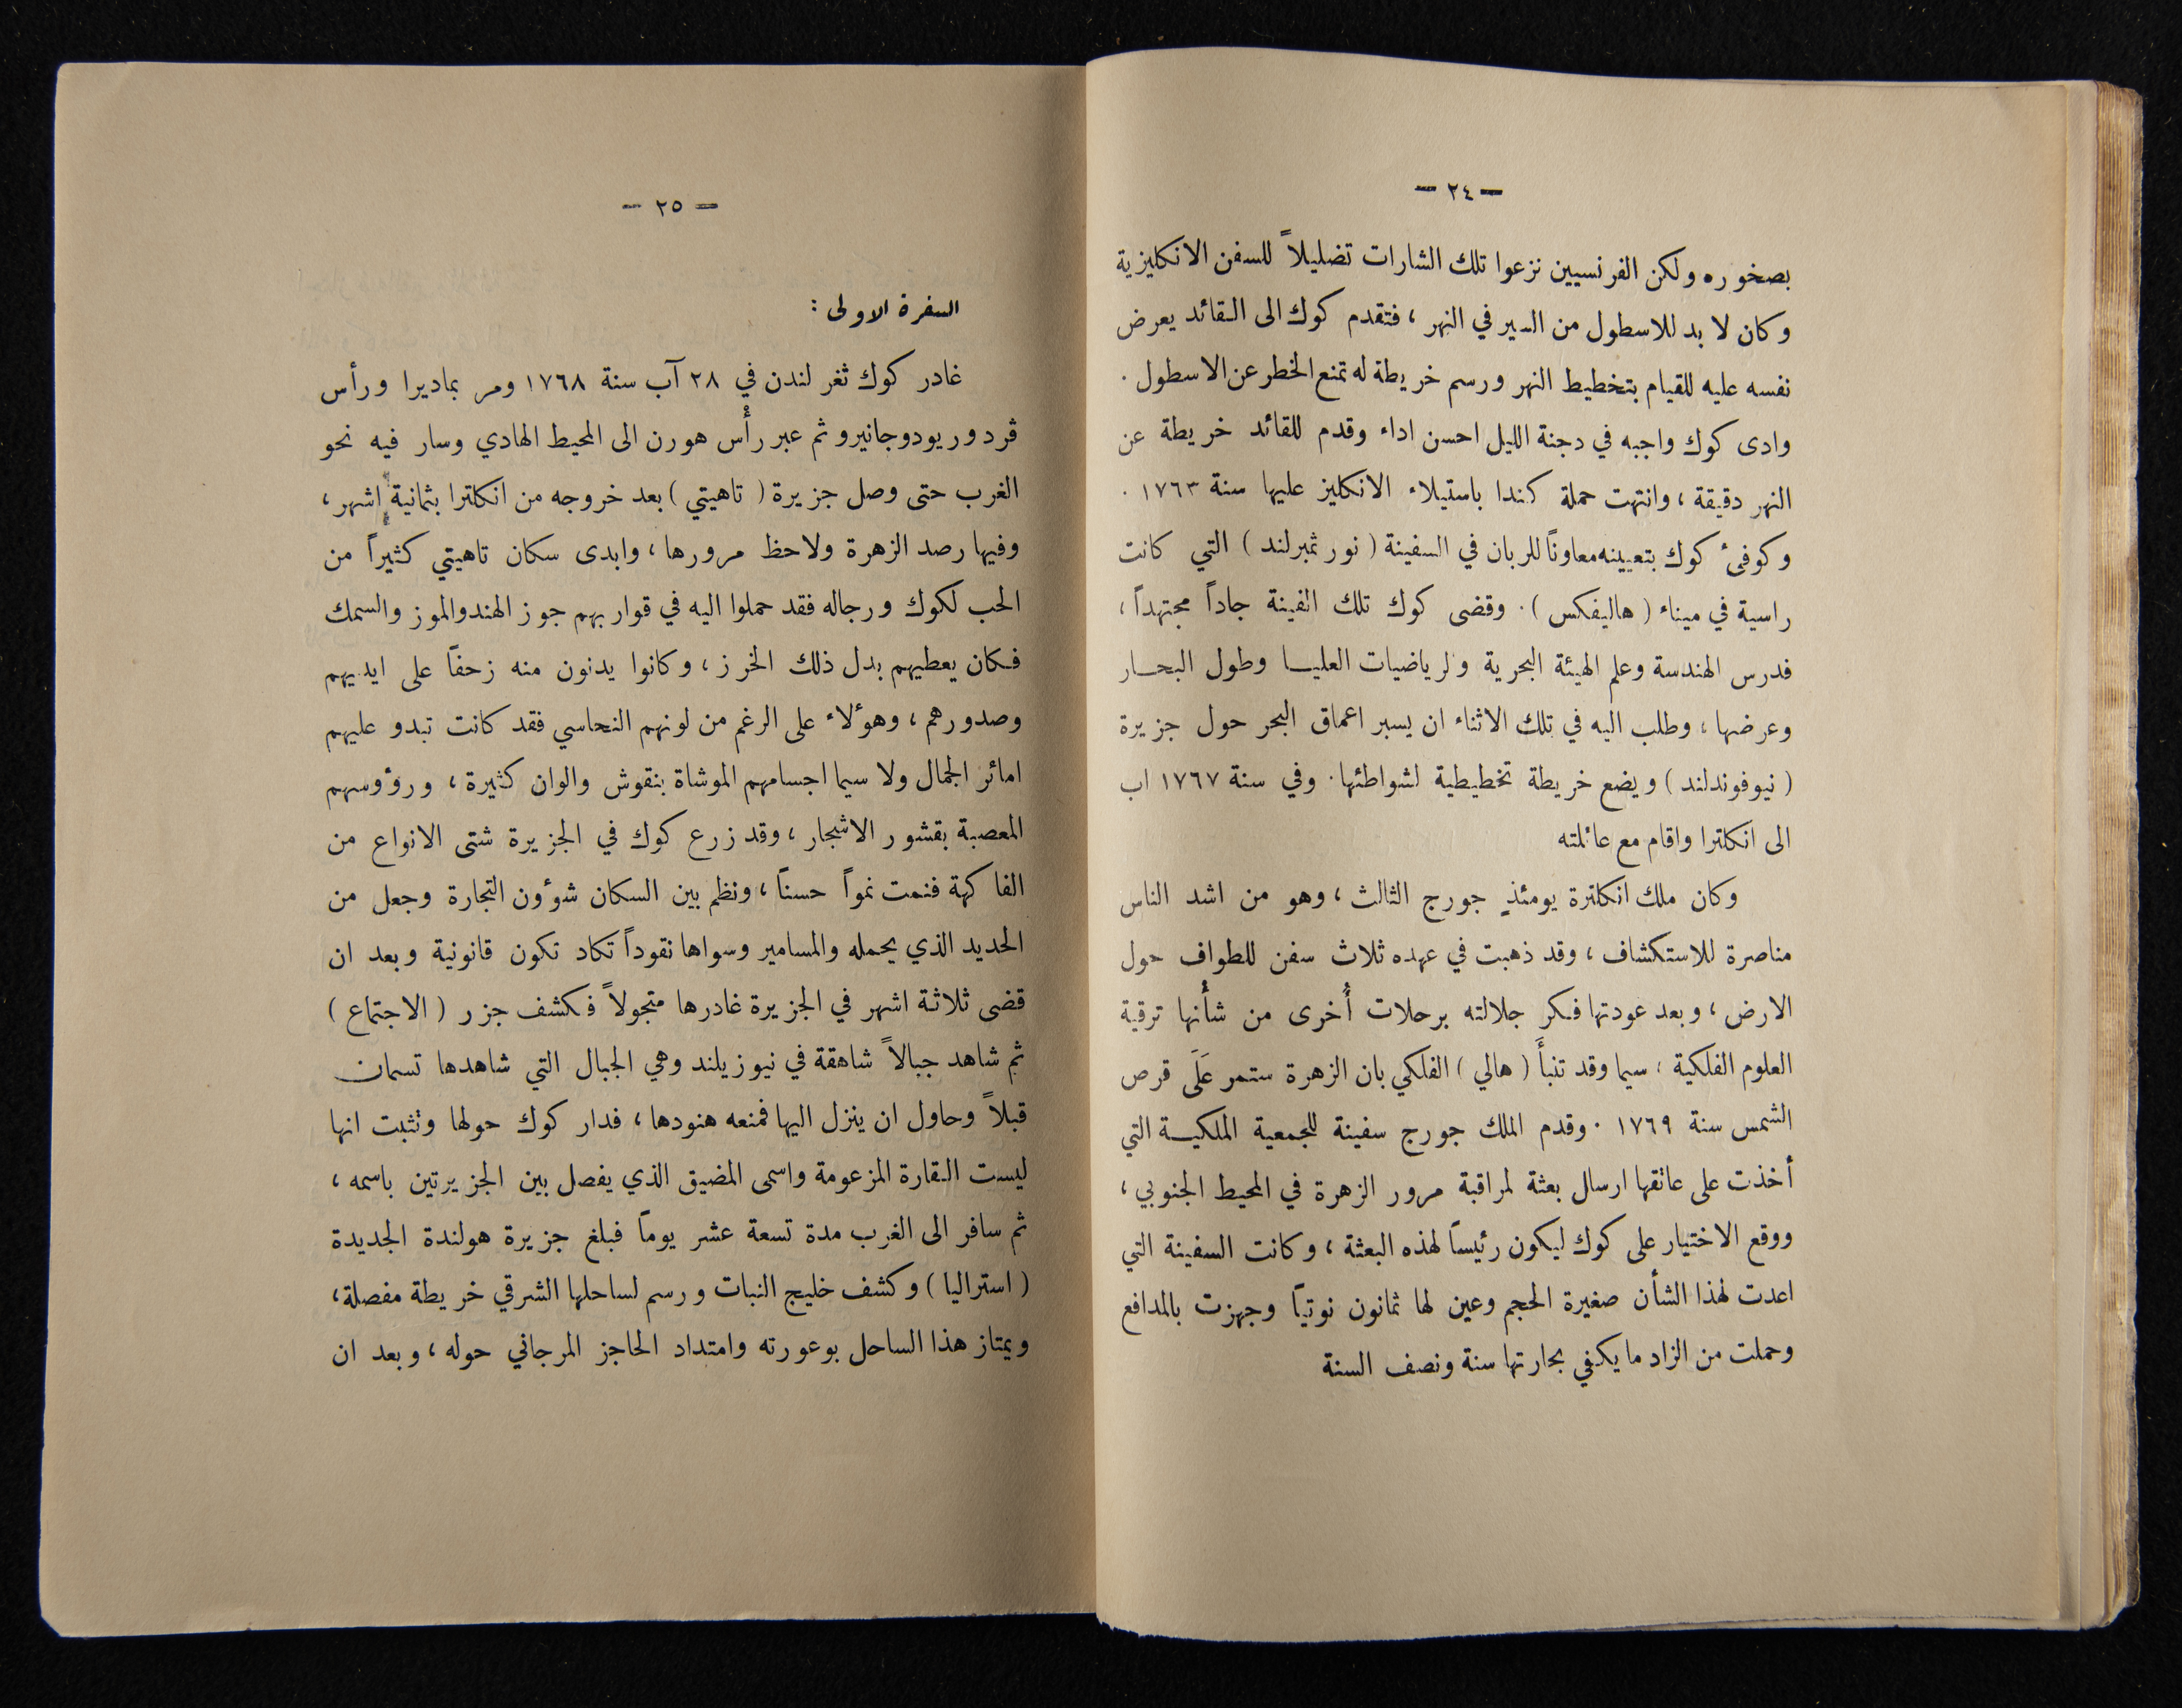 — ٢٤ —
بصخوره ولكن الفرنسيين نزعوا تلك الشارات تضليلاً للسفن الانكليزية
وكان لا بد للاسطول من السير في النهر ، فتقدم كوك الى القائد يعرض
نفسه عليه للقيام بتخطيط النهر ورسم خريطة له تمنع الخطر عن الاسطول .
وادى كوك واجبه في دجنة الليل احسن اداء وقدم للقائد خريطة عن
النهر دقيقة ، وانتهت حملة كندا باستيلاء الانكليز عليها سنة ١٧٦٣ .
وكوفئ كوك بتعيينه معاوناً للربان في السفينة ( نور ثمبرلند ) التي كانت
راسية في ميناء ( هاليفكس ) . وقضى كوك تلك الفينة جاداً مجتهداً ،
فدرس الهندسة وعلم الهيئة البحرية والرياضيات العليا وطول البحار
وعرضها ، وطلب اليه في تلك الاثناء ان يسبر اعماق البحر حول جزيرة
( نيوفوندلند ) ويضع خريطة تخطيطية لشواطئها . وفي سنة ١٧٦٧ اب
الى انكلترا واقام مع عائلته
وكان ملك انكلترة يومئذٍ جورج الثالث ، وهو من اشد الناس
مناصرة للاستكشاف ، وقد ذهبت في عهده ثلاث سفن للطواف حول
الارض ، وبعد عودتها فكر جلالته برحلات أُخرى من شأنها ترقية
العلوم الفلكية ، سيما وقد تنبأَ ( هالي ) الفلكي بان الزهرة ستمر عَلَى قرص
الشمس سنة ١٧٦٩ . وقدم الملك جورج سفينة للجمعية الملكية التي
أخذت على عاتقها ارسال بعثة لمراقبة مرور الزهرة في المحيط الجنوبي ،
ووقع الاختيار على كوك ليكون رئيساً لهذه البعثة ، وكانت السفينة التي
اعدت لهذا الشأن صغيرة الحجم وعين لها ثمانون نوتياً وجهزت بالمدافع
وحملت من الزاد ما يكفي بحارتها سنة ونصف السنة
— ٢٥ —
السفرة الاولى :
غادر كوك ثغر لندن في ٢٨ آب سنة ١٧٦٨ ومر بماديرا ورأس
ڤرد وريودوجانيرو ثم عبر رأْس هورن الى المحيط الهادي وسار فيه نحو
الغرب حتى وصل جزيرة ( تاهيتي ) بعد خروجه من انكلترا بثمانية اشهر ،
وفيها رصد الزهرة ولاحظ مرورها ، وابدى سكان تاهيتي كثيراً من
الحب لكوك ورجاله فقد حملوا اليه في قواربهم جوز الهند والموز والسمك
فكان يعطيهم بدل ذلك الخرز ، وكانوا يدنون منه زحفاً على ايديهم
وصدورهم ، وهؤلاء على الرغم من لونهم النحاسي فقد كانت تبدو عليهم
امائر الجمال ولا سيما اجسامهم الموشاة بنقوش والوان كثيرة ، ورؤوسهم
المعصبة بقشور الاشجار ، وقد زرع كوك في الجزيرة شتى الانواع من
الفاكهة فنمت نمواً حسناً ، ونظم بين السكان شؤون التجارة وجعل من
الحديد الذي يحمله والمسامير وسواها نقوداً تكاد تكون قانونية وبعد ان
قضى ثلاثة اشهر في الجزيرة غادرها متجولاً فكشف جزر ( الاجتماع )
ثم شاهد جبالاً شاهقة في نيوزيلند وهي الجبال التي شاهدها تسمان
قبلاً وحاول ان ينزل اليها فمنعه هنودها ، فدار كوك حولها وتثبت انها
ليست القارة المزعومة واسمى المضيق الذي يفصل بين الجزيرتين باسمه ،
ثم سافر الى الغرب مدة تسعة عشر يوماً فبلغ جزيرة هولندة الجديدة
( استراليا ) وكشف خليج النبات ورسم لساحلها الشرقي خريطة مفصلة ،
ويمتاز هذا الساحل بوعورته وامتداد الحاجز المرجاني حوله ، وبعد ان